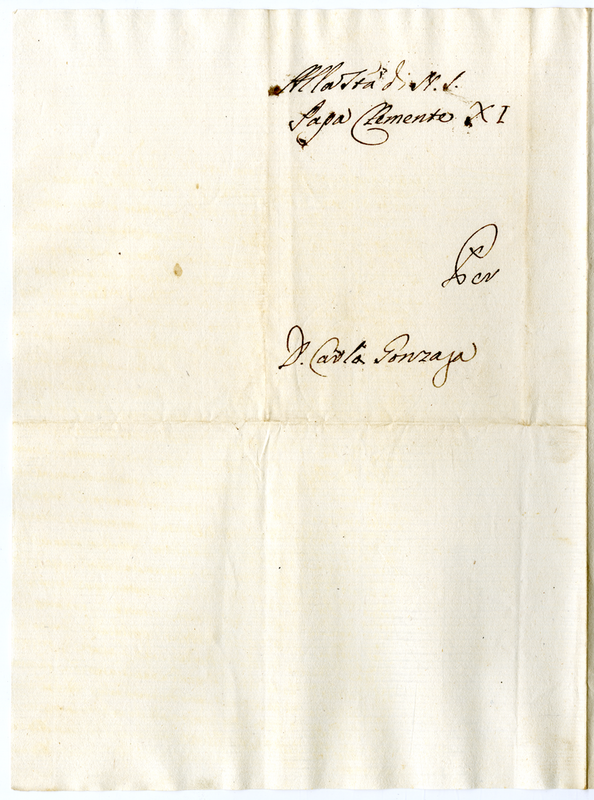 Alla Stà di N. S.
Papa Clemente XI
Per
D. Carlo Gonzaga